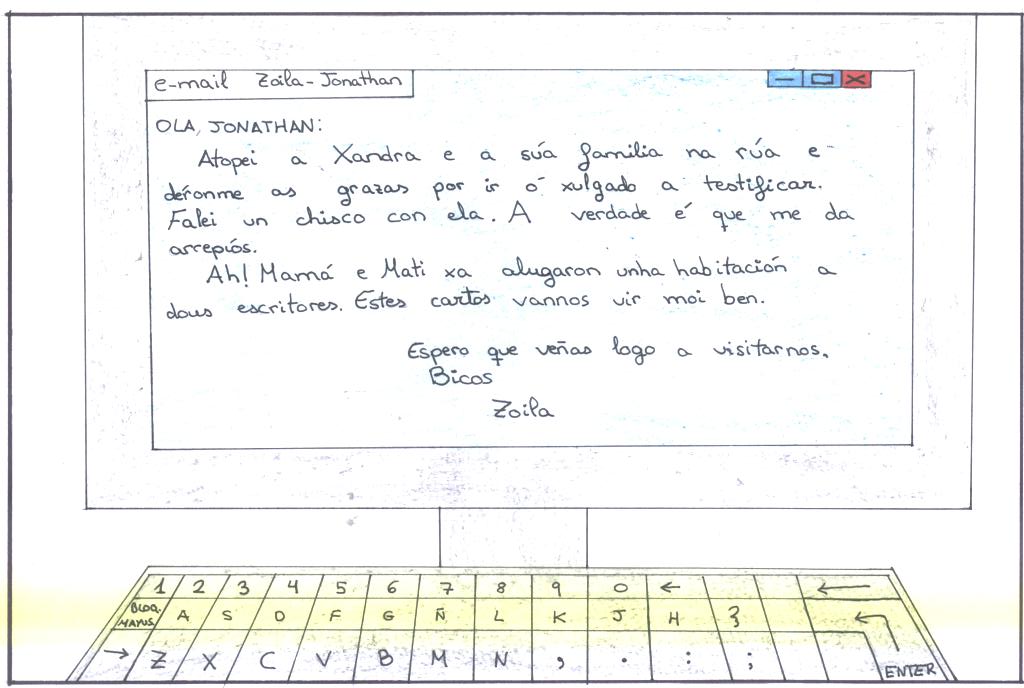 e-mail Zoila-Jonathan
OLA, JONATHAN:
Atopei a Xandra e a súa familia na rúa e
déronme as grazas por ir ó xulgado a testificar.
Falei un chisco con ela. A verdade é que me da
arrepiós.
Ah! Mamá e Mati xa alugaron unha habitación a
dous escritores. Estes cartos vannos vir moi ben.
Espero que veñas logo a visitarnos.
Bicos
Zoila
1 2 3 4 5 6 7 8 9 0 ←
BLOQ. MAYUS. A S D F G Ñ L K J H }
→ Z X C V B M N , . : ; ENTER